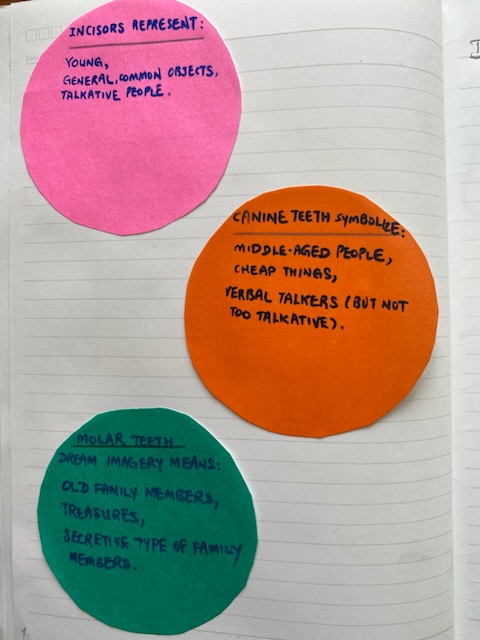 INCISORS REPRESENT:
YOUNG,
GENERAL, COMMON OBJECTS,
TALKATIVE PEOPLE.
CANINE TEETH SYMBOLIZE:
MIDDLE-AGED PEOPLE,
CHEAP THINGS,
VERBAL TALKERS (BUT NOT
TOO TALKATIVE).
MOLAR TEETH
DREAM IMAGERY MEANS:
OLD FAMILY MEMBERS,
TREASURES,
SECRETIVE TYPE OF FAMILY
MEMBERS.